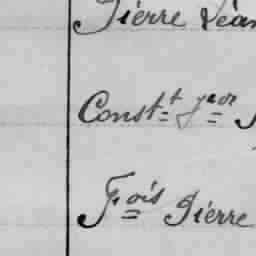 Pierre Léan
Constt Jeor
Fois Pierre